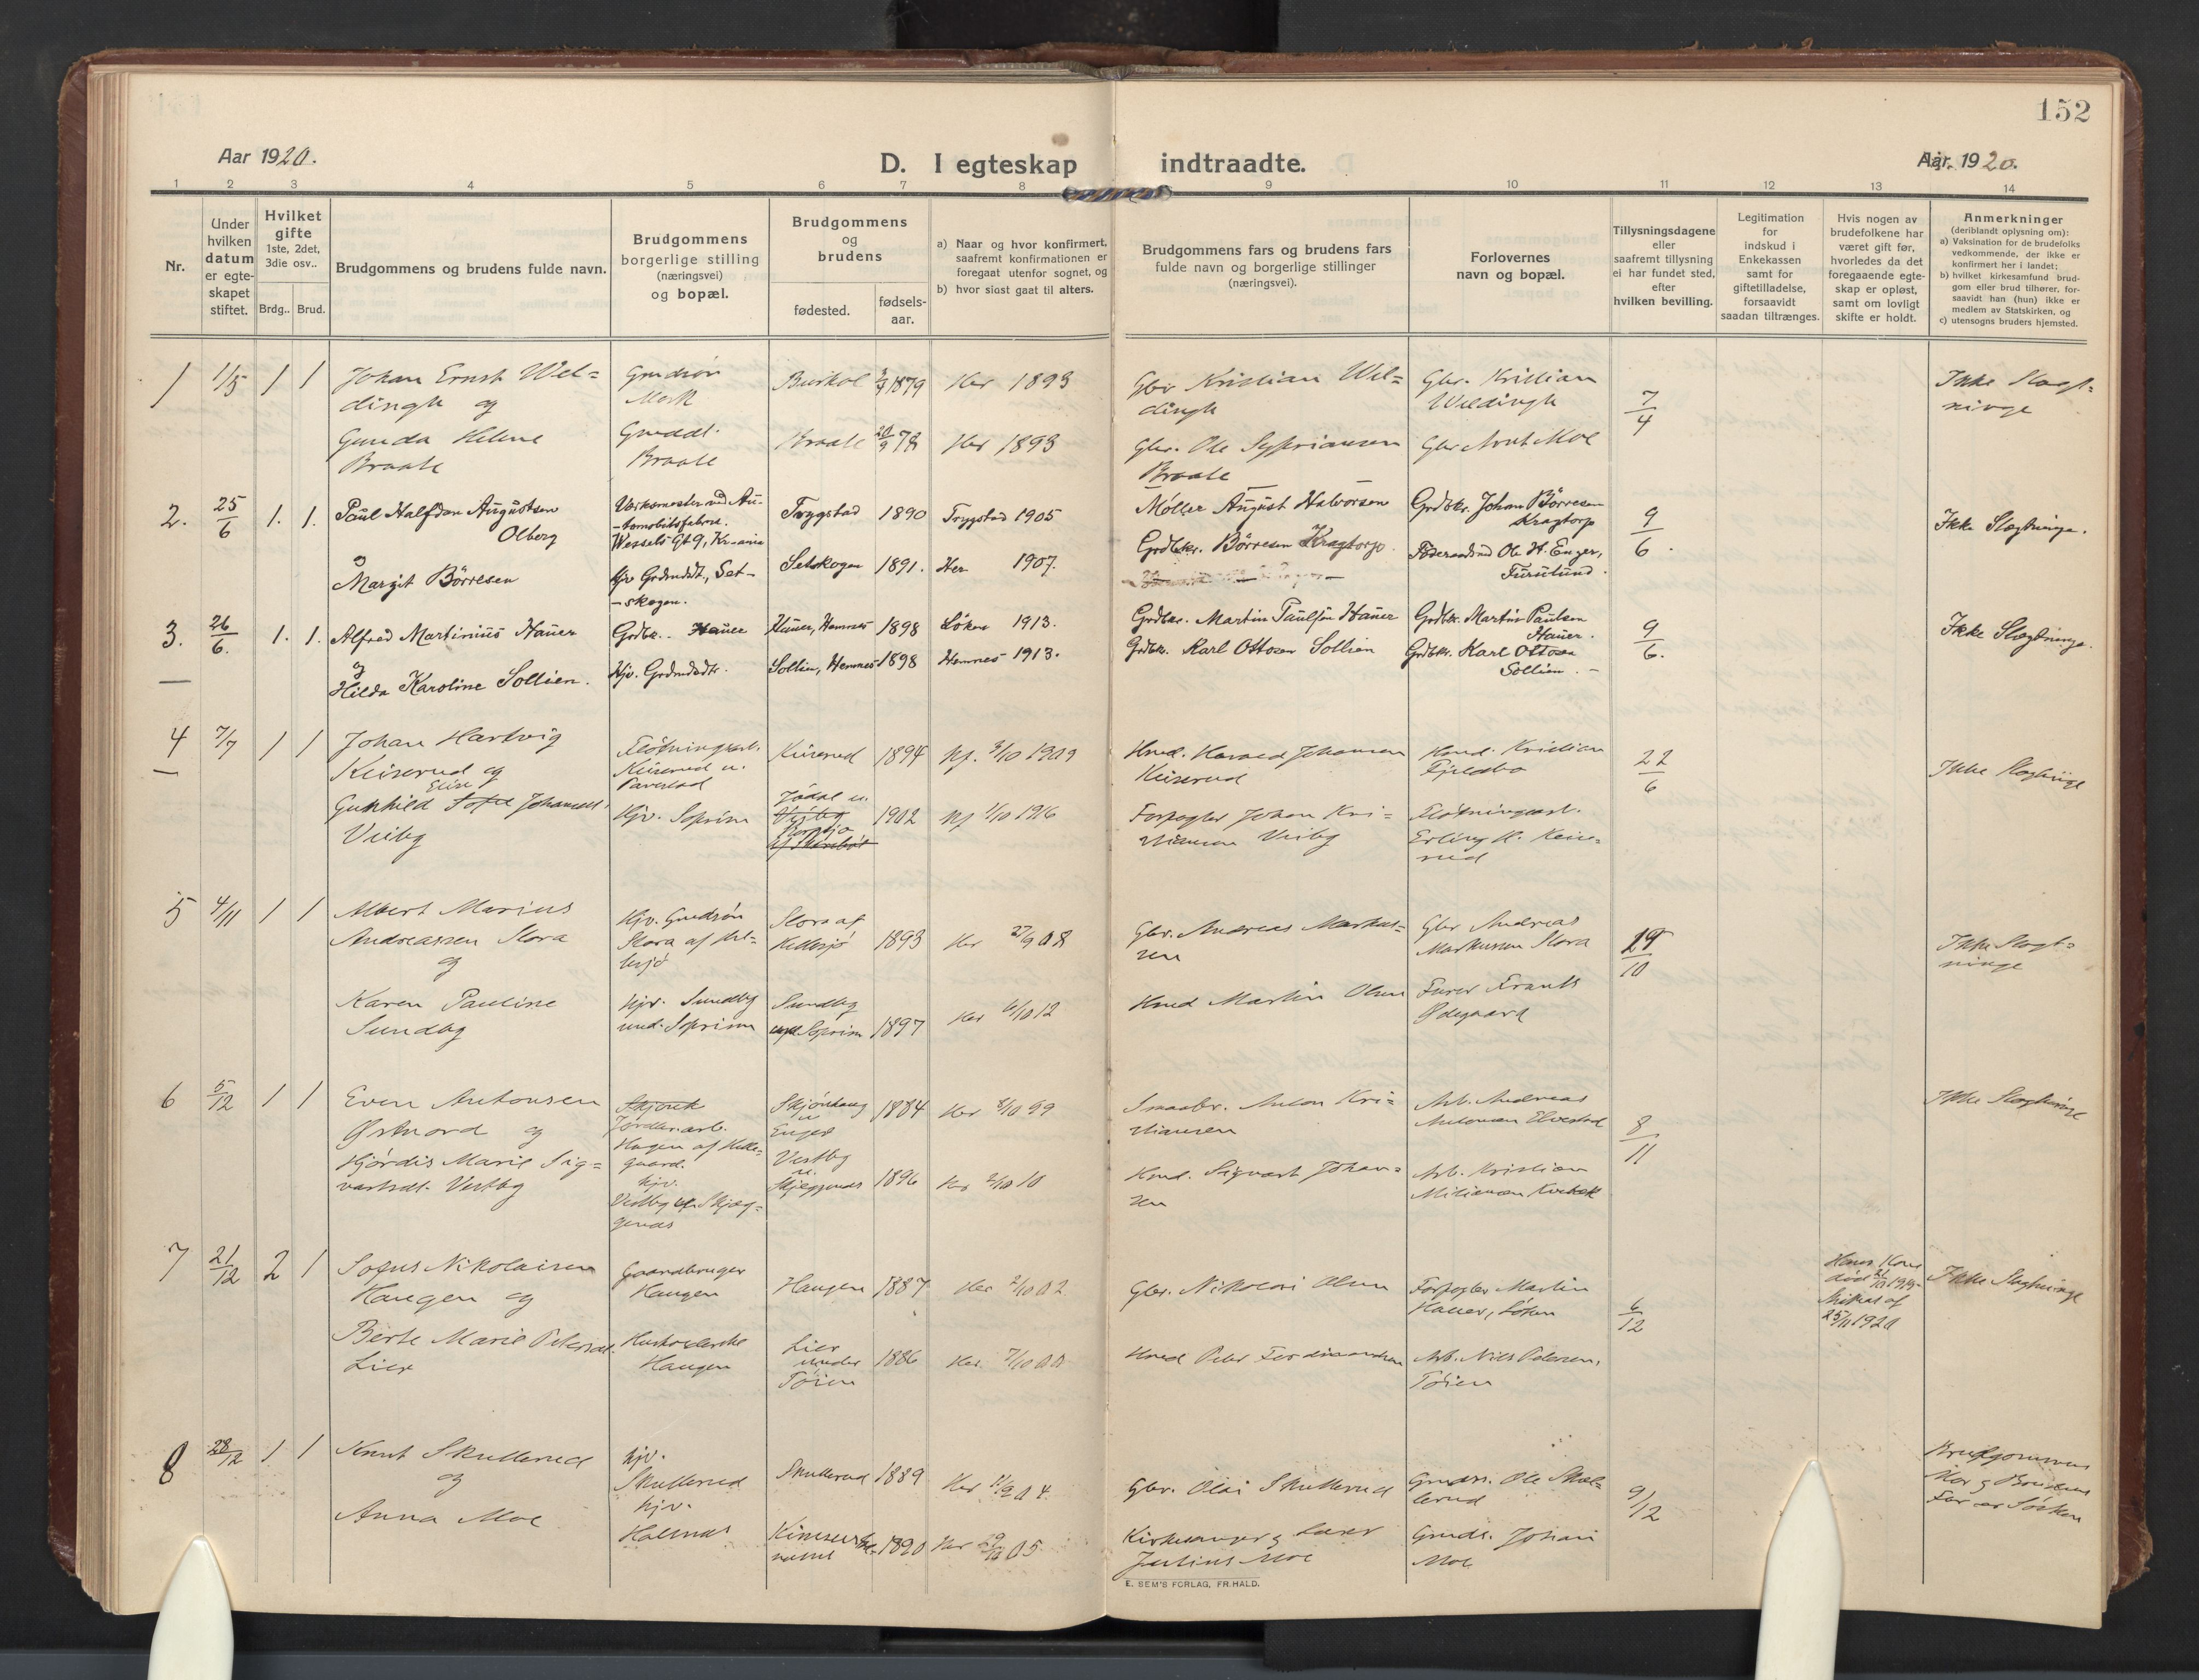 152
Aar 1920.
D. I egteskap indtraadte.
Aar 1920.
1 2 3 4 5 6 7 8 9 10 11 12 13 14
Nr.
Under
hvilken
datum
er egte-
skapet
stiftet.
Hvilket
gifte
1ste, 2det,
3die osv..
Brdg.. Brud.
Brudgommens og brudens fulde navn.
Brudgommens
borgerlige stilling
(næringsvei)
og bopæl.
Brudgommens
og
brudens
fødested.
fødsels-
aar.
a) Naar og hvor konfirmert,
saafremt konfirmationen er
foregaat utenfor sognet, og
b) hvor sidst gaat til alters.
Brudgommens fars og brudens fars
fulde navn og borgerlige stillinger
(næringsvei).
Forlovernes
navn og bopæl.
Tillysningsdagene
eller
saafremt tillysning
ei har fundet sted,
efter
hvilken bevilling.
Legitimation
for
indskud i
Enkekassen
samt for
giftetilladelse,
forsaavidt
saadan tiltrænges.
Hvis nogen av
brudefolkene har
været gift før,
hvorledes da det
foregaaende egte-
skap er opløst,
samt om lovligt
skifte er holdt.
Anmerkninger
(deriblandt oplysning om):
a) Vaksination for de brudefolks
vedkommende, der ikke er
konfirmert her i landet;
b) hvilket kirkesamfund brud-
gom eller brud tilhører, for-
saavidt han (hun) ikke er
medlem av Statskirken, og
c) utensogns bruders hjemsted.
1 1/5 1 1
Johan Ernst Wel-
dingh og
Gunda Helene
Braate
Grudsøn
Mork
Gmddt.
Braate
1879 Her 1893
Braate 20/9 78 Her 1893
Gbr Kristian Wel-
dingh
Gbr. Ole Sypriansen
Braate
Gbr. Kristian
Weldingh
Gbr Arnt Moe
7/4
Ikke Slegt-
ninge
2. 25/6 1. 1.
Paul Halfdan Augustsen
Olberg
og
Margit Börresen
Verksmester ved Au-
-tomobilfabrik.
Wessels Gt 9, Kr-ania
Hjv Grdmddt., Set-
-skogen.
Trygstad 1890 Trygstad 1905
Setskogen 1891. Her 1907.
Møller August Halvorsen
Grdbkr. Börresen Kragtorp.
Grdbkr. Johan Börresen
Kragtorp
Föderaadsmd Ole H. Enger,
Furulund.
9/6.
Ikke Slegtninge.
3. 26/6. 1. 1.
Alfred Martinius Hauer
og
Hilda Karoline Sollien.
Grdbr. Hauer
Hjv. Grdmddtr.
Hauer, Hemnes 1898 Löken 1913.
Sollien, Hemnes 1898 Hemnes 1913.
Grdbkr. Martin Paulsen Hauer
Grdbkr. Karl Ottosen Sollien
Grdbkr. Martin Paulsen
Hauer.
Grdbkr. Karl Ottosen
Sollien.
9/6.
Ikke Slegtninge.
4 7/7 1 1
Johan Hartvig
Keiserud og
Elise
Gunhild Sofie Johannesd.
Veiby
Fløtningsarb.
Keiserud u.
Hjv. Soprim
Keiserud 1894 Nf. 3/10 1909
1902 Nf 1/10 1916
Hmd. Harald Johansen
Keiserud
Forpagter Johan Kri-
stiansen Veiby
Hmd. Kristian
Fjeldbo
Fløtningsarb.
Erling H. Keise-
rud
22/6
Ikke Slegtninge
5 4/11 1 1
Albert Marius
Andreassen Slora
og
Karen Pauline
Sundby
Hjv. Grudsøn
Slora af Kil-
lesjø
Hjv. Sundby
und. Soprim
Slora af
Killesjø 1893 Her 27/9 08
Sundby
und Soprim 1897 Her 6/10 12
Gbr. Andreas Markus-
sen
Hmd Martin Olsen
Gbr Andreas
Markussen Slora
Furer Frants
Ødegaard
19/10
Ikke Slegt-
ninge
6 5/12 1 1
Even Antonsen
Østnord og
Hjørdis Marie Sig-
vartsdt. Vestby
Jordbr.arb.
Haugen af Kille-
gaard.
hjv.
Vestby af Skjeg-
genes
Skjønhaug
u.
Enger 1884 Her 8/10 99
Vestby
u.
Skjeggenes 1896 Her 2/10 10
Smaabr. Anton Kri-
stiansen
Hmd. Sigvart Johan-
sen
Arb. Andreas
Antonsen Elvestad
Arb. Kristian
8/11
Ikke Slegtninge
7 21/12 2 1
Sofus Nikolaisen
Haugen og
Berte Marie Petersdt.
Lier
Gaardbruger
Haugen
Husholderske
Haugen
Haugen 1887 Her 2/10 02
Lier
under
Tøien 1886 Her. 7/10 00
Gbr. Nikolai Olsen
Hmd Peter Ferdinandsen
Forpagter Martin
Hauer, Løken
Arb. Nils Petersen,
Tøien
6/12
Hans Kone
død 1919
Skiftet af
25/11 1920
Ikke Slegtninge
8 28/12 1 1
Knut Skullerud
og
Anna Moe
hjv.
Skullerud
hjv.
Halsnes
Skullerud 1889 Her 11/9 04
1890 Her 05
Gbr. Olai Skullerud
Kirkesanger og Lærer
Julius Moe
Grudss. Ole Skul-
lerud
Grudss. Johan
Moe
9/12
Brudgommens
Mor og Brudens
Far er Søsken
E. SEM'S FORLAG, FR.HALD.